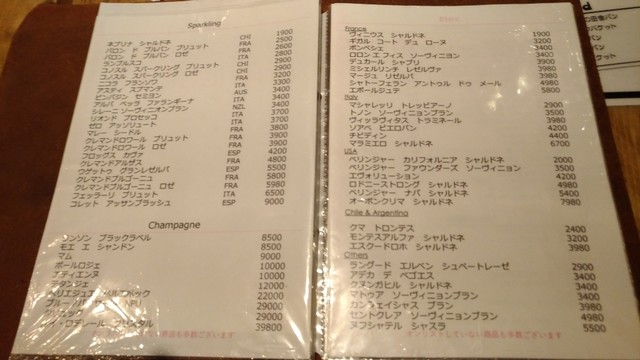 Sparkling
ネブリナ シャルドネ CHI 1900
バロン ド ブルバン ブリュット FRA 2500
バロン ド ブルバン ロゼ FRA 2600
ランブルスコ ITA 2800
コノスル スパークリング ブリュット CHI 2900
コノスル スパークリング ロゼ CHI 2900
FRA 3200
アスティ スプマンテ ITA 3300
ピンバジン セミヨン AUS 3400
アルパ ベッラ ファランギーナ ITA 3400
シレーニ ソーヴィニオンブラン NZL 3400
リオンド プロセッコ ITA 3700
ゼロ アッソリュート ITA 3700
マレー シードル FRA 3800
クレマンドロワール ブリュット FRA 3900
クレマンドロワール ロゼ FRA 3900
フロッグス カヴァ ESP 4200
クレマンドアルザス FRA 4800
ウゲットゥ グランレゼルバ ESP 5500
クレマンドブルゴーニュ FRA 5800
クレマンドブルゴーニュ ロゼ FRA 5980
フェッラーリ ブリュット ITA 6500
コレット アッサンブラッシュ ESP 9000
Champagne
ランソン ブラックラベル 8500
モエ エ シャンドン 8500
マム 9000
ポールロジェ 10000
ブティエンヌ 10000
テタンジェ 12000
22000
29000
29000
39800
France
ヴィニウス シャルドネ 1900
ギガル コート デュ ローヌ 3200
ボンペシェ 3400
ロロン エ フィス ソーヴィニヨン 3400
デュカール シャブリ 3900
ミシェルリンチ レゼルヴァ 3980
マージュ リゼルバ 3980
シャトーフェラン アントゥル ドゥ メール 4980
エポールジュテ 5800
Italy
マシャレッリ トレッビアーノ 2900
トノン ソーヴィニョンブラン 3500
ヴィッラヴィタス トラミネール 3980
ソアベ ピエロパン 4200
チビディン 4400
マラミエロ シャルドネ 6700
USA
ベリンジャー カリフォルニア シャルドネ 2000
ベリンジャー ファウンダーズ ソーヴィニョン 3500
エヴォリューション 4200
ロドニーストロング シャルドネ 4980
ベリンジャー ナパ シャルドネ 5400
オーボンクリマ シャルドネ 7980
Chile & Argentina
クマ トロンテス 2400
モンテスアルファ シャルドネ 3200
エスクードロホ シャルドネ 3980
Others
ラングード エルベン シュペートレーゼ 2900
アデカ デ ベゴエス 3400
クヌンガヒル シャルドネ 3400
マトゥア ソーヴィニョンブラン 3400
ガンチェイシャス ブラン 3980
セントクレア ソーヴィニョンブラン 4980
ヌフシャテル シャスラ 5500